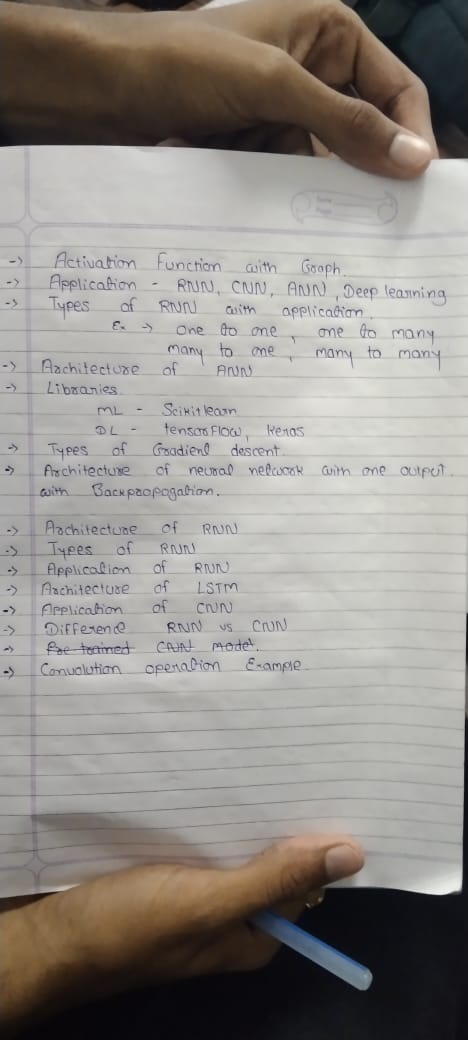 -> Activation Function with Graph.
-> Application - RNN, CNN, ANN, Deep learning
-> Types of RNN with application.
Ex -> one to one, one to many
many to one, many to many
-> Architecture of ANN
-> Libraries
ML - Scikitlearn
DL - tensorFlow, Keras
-> Types of Gradient descent.
-> Architecture of neural network with one output.
with Backpropogation.
-> Architecture of RNN
-> Types of RNN
-> Application of RNN
-> Architecture of LSTM
-> Application of CNN
-> Difference RNN vs CNN
-> Pre trained CNN model.
-> Convolution operation Example.